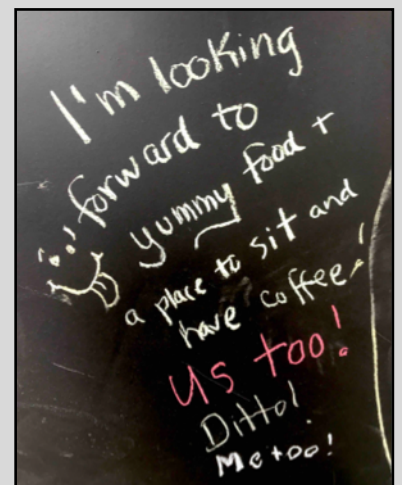 I'm looking
forward to
yummy food +
a place to sit and
have coffee!
Us too!
Ditto!
Me too!